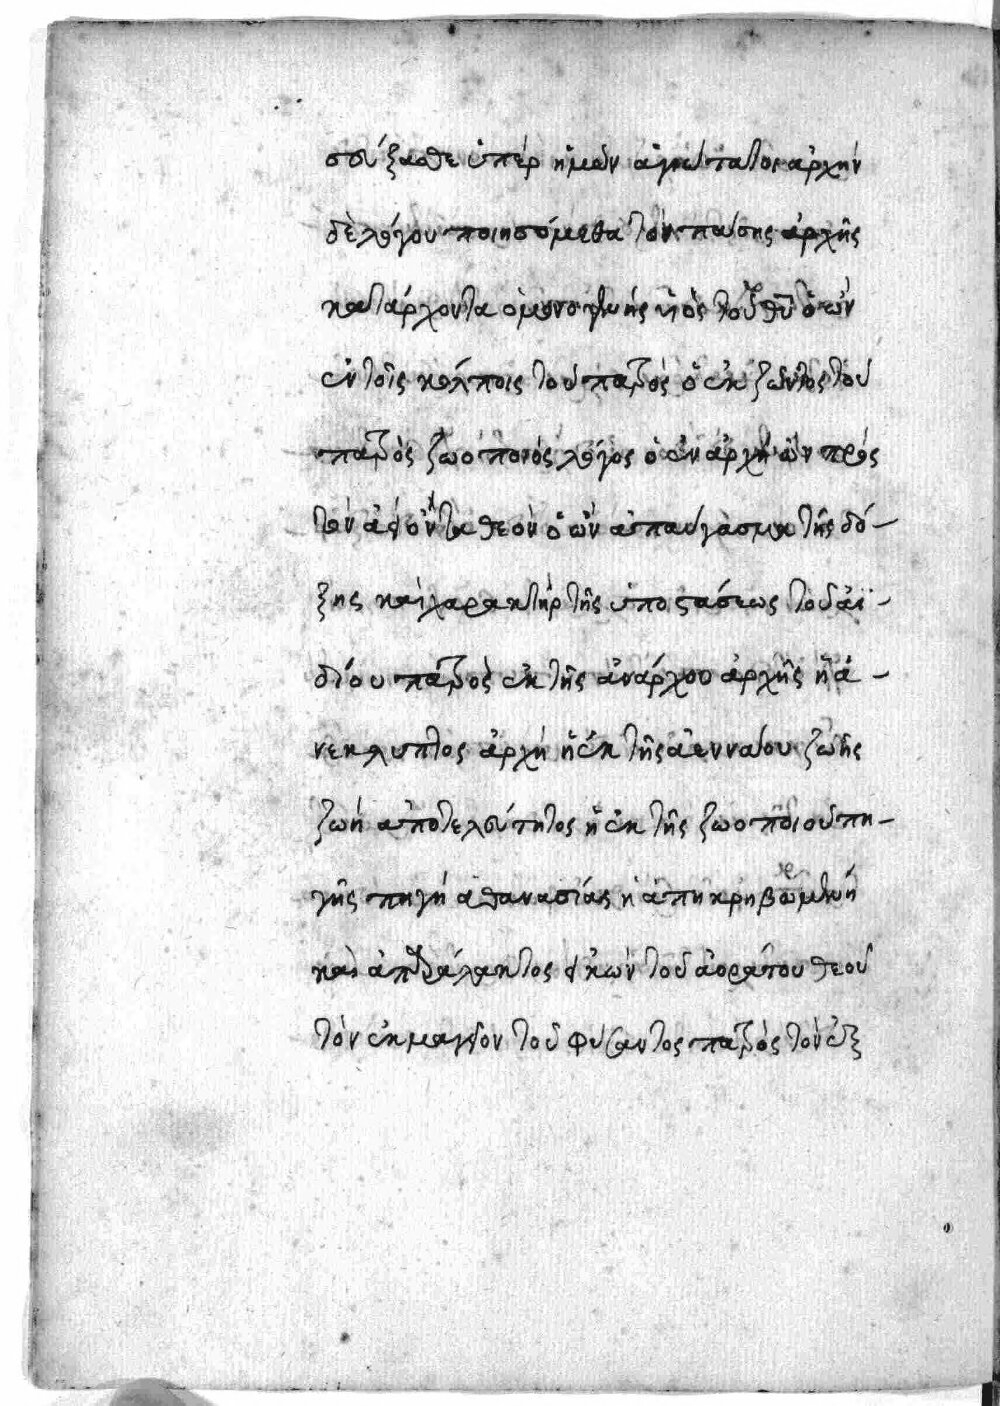 σπεύξασθε ὑπέρ ἡμῶν ἁγιώτατοι ἀρχήν
δὲ λόγου ποιησόμεθα τόν πάσης ἀρχῆς
κατάρχοντα ὁ μονογενής υἱὸς τοῦ θῦ ὁ ὤν
ἐν τοῖς κόλποις τοῦ πατρὸς ὁ ἐκ ζῶντος τοῦ
πατρὸς ζωοποιός λόγος ὁ ἐν ἀρχῇ ὤν πρός
τὸν ἀεὶ ὄντα θεὸν ὁ ὢν ἀπαύγασμα τῆς δό-
ξης καὶ χαρακτὴρ τῆς ὑποστάσεως τοῦ ἀϊ-
δίου πατρὸς ἐκ τῆς ἀνάρχου ἀρχῆς ἡ ἀ-
νεκλυπτος ἀρχή ἡ ἐκ τῆς ἀενναίου ζωῆς
ζωή ἀποτελεύτητος ἡ ἐκ τῆς ζωοποιοῦ πη-
γῆς πηγή αθανασίας ἡ ἀπηκρηβωμένη
καὶ ἀπαράλακτος εἰκὼν τοῦ ἀοράτου θεοῦ
τὸν ἐκμαγεῖον τοῦ φύσαντος πατρὸς τὸν ἐξ